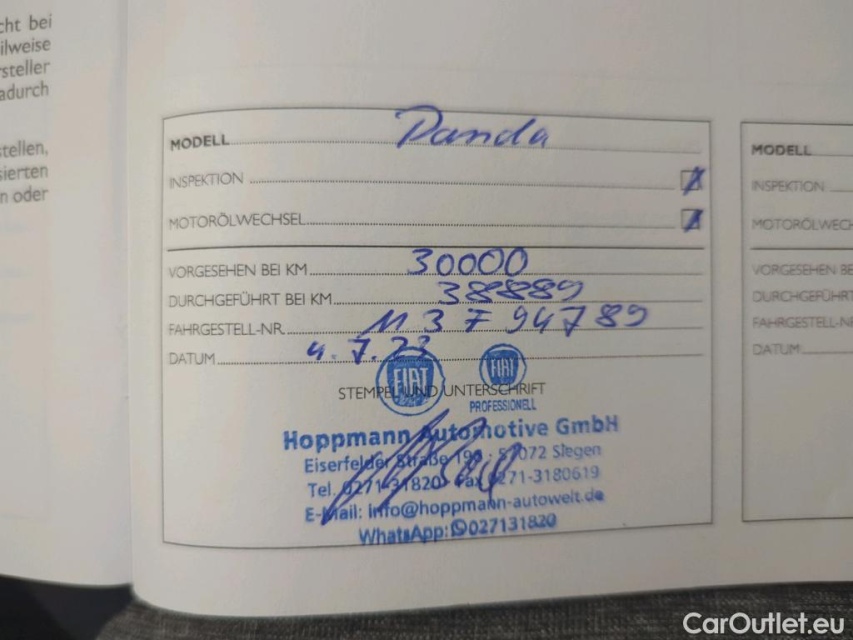 cht bei
ilweise
rsteller
adurch
tellen,
sierten
n oder
MODELL Panda
INSPEKTION
MOTORÖLWECHSEL
VORGESEHEN BEI KM 30000
DURCHGEFÜHRT BEI KM 38889
FAHRGESTELL-NR. M 3 7 94789
DATUM 4.7.23
FIAT FIAT
STEMPEL UND UNTERSCHRIFT
PROFESSIONELL
Hoppmann Automotive GmbH
Eiserfelder Straße 57072 Siegen
Tel. 0271-31820 Fax 0271-3180619
E-Mail: info@hoppmann-autowelt.de
WhatsApp: 027131820
MODELL
INSPEKTION
MOTORÖLWECH
VORGESEHEN BE
DURCHGEFÜHRT
FAHRGESTELL-N
DATUM
CarOutlet.eu